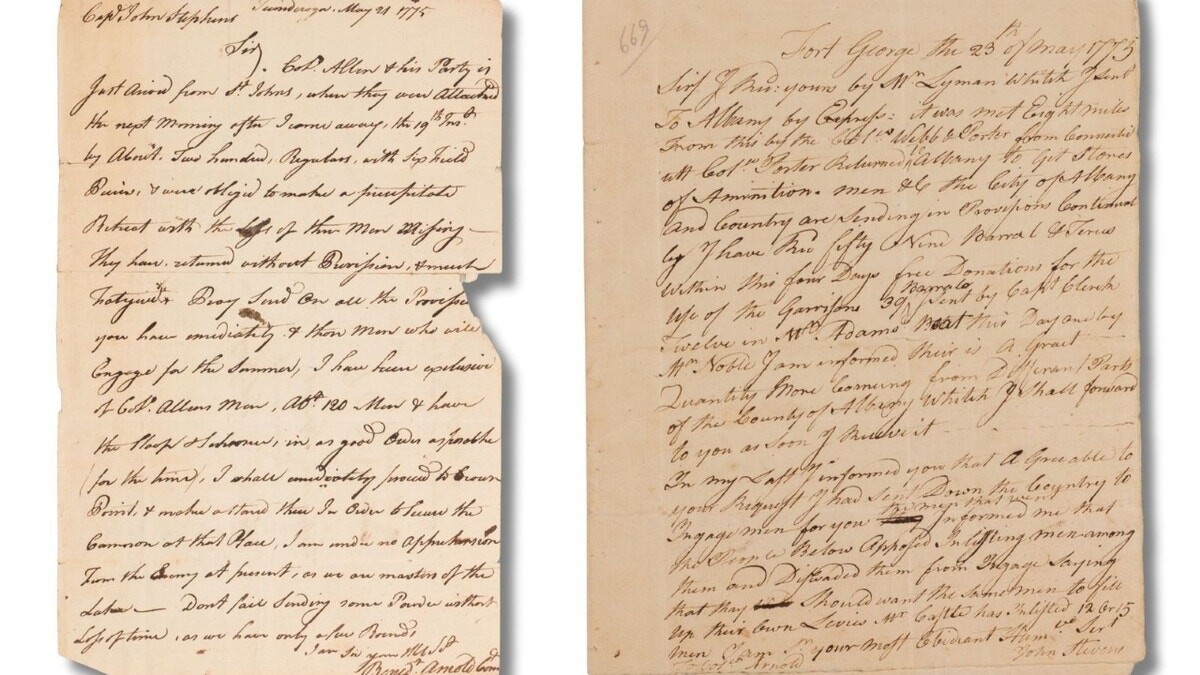 Capt John Stephens
Ticonderoga May 21 1775
Sir
Colo. Allen & his Party is
Just Arived from St Johns, where they were Attacked
the next Morning after I came away, the 19th Inst.
by About Two hundred, Regulars, with Six Field
Peices, & were obliged to make a precepitate
Retreat with the loss of three Men Missing
They have returned without Provision, & much
Fatigued Pray Send On all the Provision
you have imediately & those Men who will
Engage for the Summer, I have here exclusive
of Colo. Allens Men, Abt 120 Men & have
the Sloop & Schooner, in as good Order as possible
(for the time), I shall imediately proceed to Crown
Point, & make a stand there In Order to Secure the
Cannon at that Place, I am under no Apprehension
From the Enemy at present, as we are masters of the
Lake — Dont fail Sending some Powder without
Loss of time, as we have only a few Rounds
I am Sir your
Bened. Arnold
669
Fort George the 23th of May 1775
Sir I Recd: yours by Mr Lyman Whitch I Sent
To Albany by Express: it was met Eight miles
From this by the Webb & Porter from Connecticut
Porter Returned Albany to Get Stores
of Amunition. men &c the City of Albany
and Country are Sending in Provisions Continual
ly I have Recd fifty Nine Barrels & Terces
Within this four Days free Donations for the
Use of the Garrisons 39 Barrels Sent by Capt Clerck
Twelve in Mr Adams Boat this Day and by
Mr Noble I am informed their is A Great
Quantity More Comeing from Difrant Parts
of the County of Albany Whitch I Shall forward
to you as Soon I Receive it
In my Last I informed you that A Greable to
your Request I had Sent Down the Country to
Ingage men for you the men that went Informed me that
the People Below Apposed Inlisting men among
them and Diswaded them from Ingage Saying
that thay Should want the Same men to fill
Up their Own Levies Mr Castle has Inlisted 12 Or 15
men I am Sr. your most Obediant Hum Sert
To Arnold
John Stevens